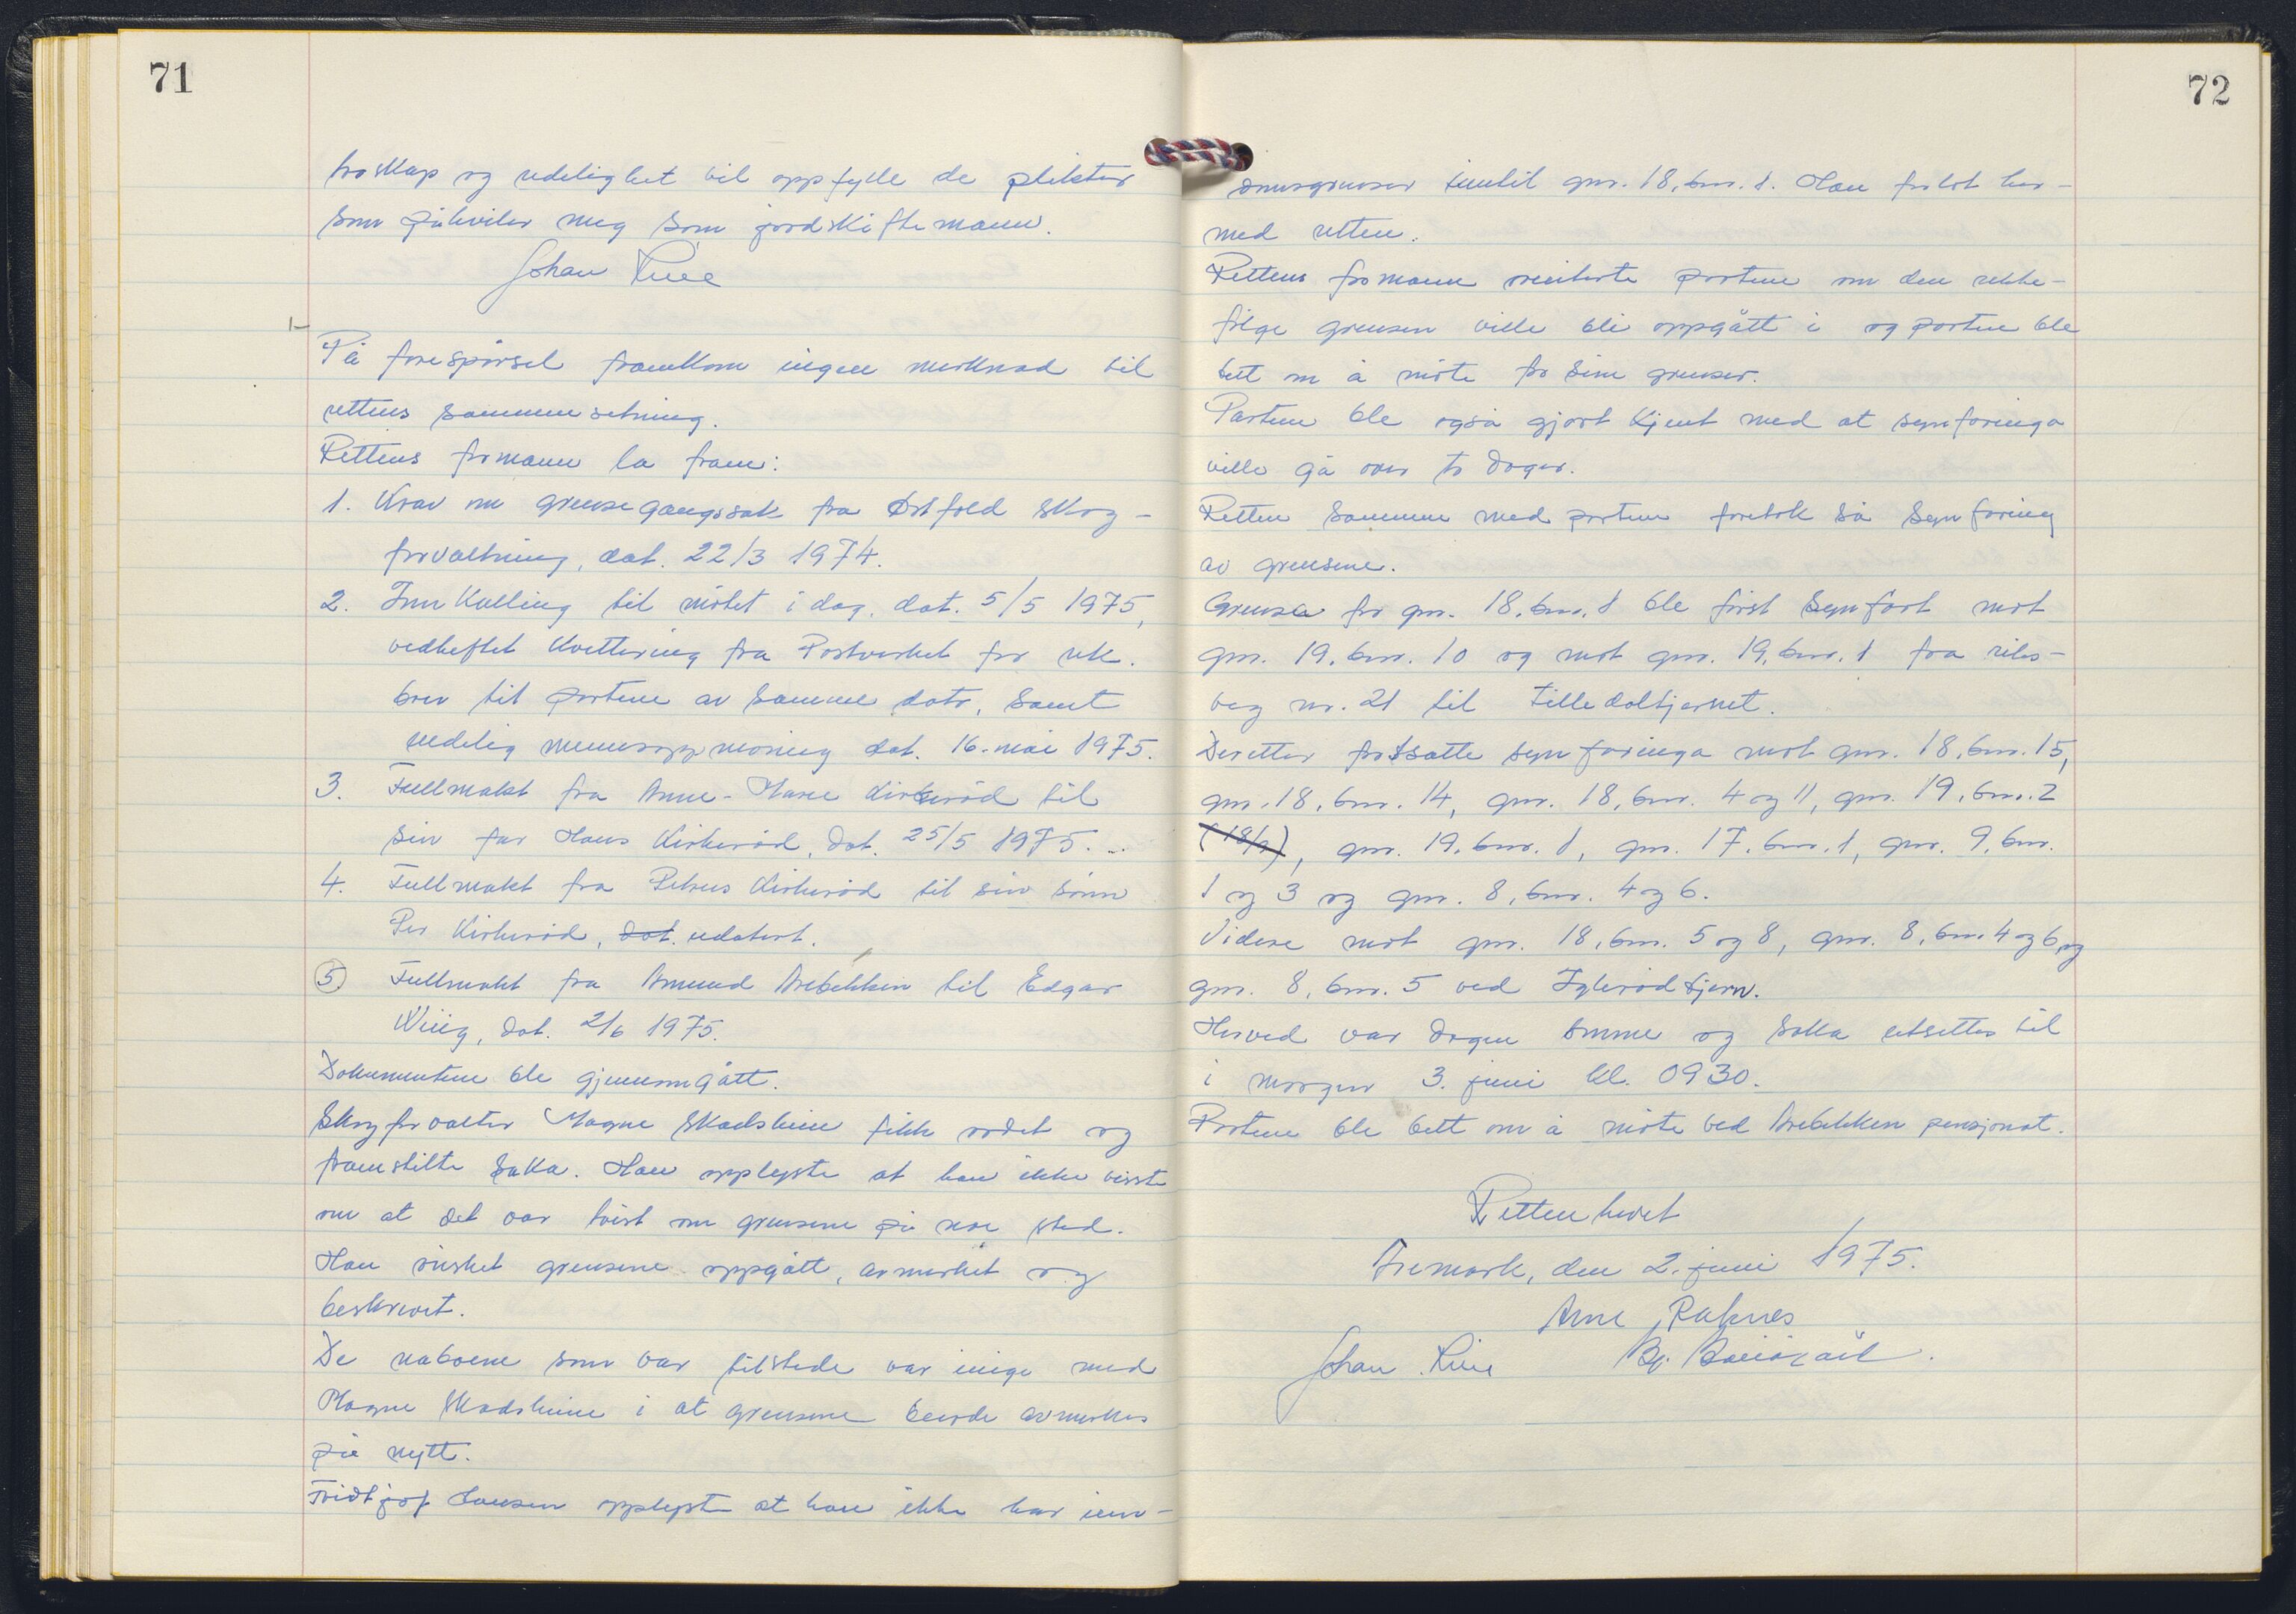 71
troskap og redelighet vil oppfylle de plikter
som påhviler meg som jordskiftemann.
Johan
På forespørsel framkom ingen merknad til
rettens sammensetning.
Rettens formann la fram:
1. Krav om grensegangssak fra Østfold skog-
forvaltning, dat. 22/3 1974.
2. Innkalling til møtet i dag, dat. 5/5 1975,
vedheftet kvittering fra Postverket for rek.
brev til partene av samme dato, samt
endelig dat. 16. mai 1975.
3. Fullmakt fra Anne-Marie Kirkerød til
sin far Hans Kirkerød, dat. 25/5 1975.
4. Fullmakt fra Petrus Kirkerød til sin sønn
Per Kirkerød, dat. udatert.
5 Fullmakt fra Amund Arebekken til Edgar
Wiig, dat. 2/6 1975.
Dokumentene ble gjennomgått.
Skogforvalter Magne Skadsheim fikk ordet og
framstilte saka. Han opplyste at han ikke visste
om at det var tvist om grensene på noe sted.
Han ønsket grensene oppgått, avmerket og
beskrevet.
De naboene som var tilstede var enige med
Magne Skadsheim i at grensene burde avmerkes
på nytt.
Fridtjof Hansen opplyste at han ikke har inn-
72
marsgrenser inntil gnr. 18, bnr. 1. Han forlot her-
med retten.
Rettens formann orienterte partene om den rekke-
følge grensen ville bli oppgått i og partene ble
bett om å møte for sine grenser.
Partene ble også gjort kjent med at synfaringa
ville gå over to dager.
Retten sammen med partene foretok så synfaring
av grensene.
Grensa for gnr. 18, bnr. 1 ble først synfart mot
gnr. 19, bnr. 10 og mot gnr. 19, bnr. 1 fra riks-
veg nr. 21 til Tilledaltjernet.
Deretter fortsatte synfaringa mot gnr. 18, bnr. 15,
gnr. 18, bnr. 14, gnr. 18, bnr. 4 og 11, gnr. 19, bnr. 2
, gnr. 19, bnr. 1, gnr. 17, bnr. 1, gnr. 9, bnr.
1 og 3 og gnr. 8, bnr. 4 og 6.
Videre mot gnr. 18, bnr. 5 og 8, gnr. 8, bnr. 4 og 6 og
gnr. 8, bnr. 5 ved Iglerødtjern.
Herved var dagen omme og saka utsettes til
i morgen 3. juni kl. 0930.
Partene ble bett om å møte ved Arebekken pensjonat.
Retten hevet
Aremark, den 2. juni 1975.
Arne Raknes
Johan